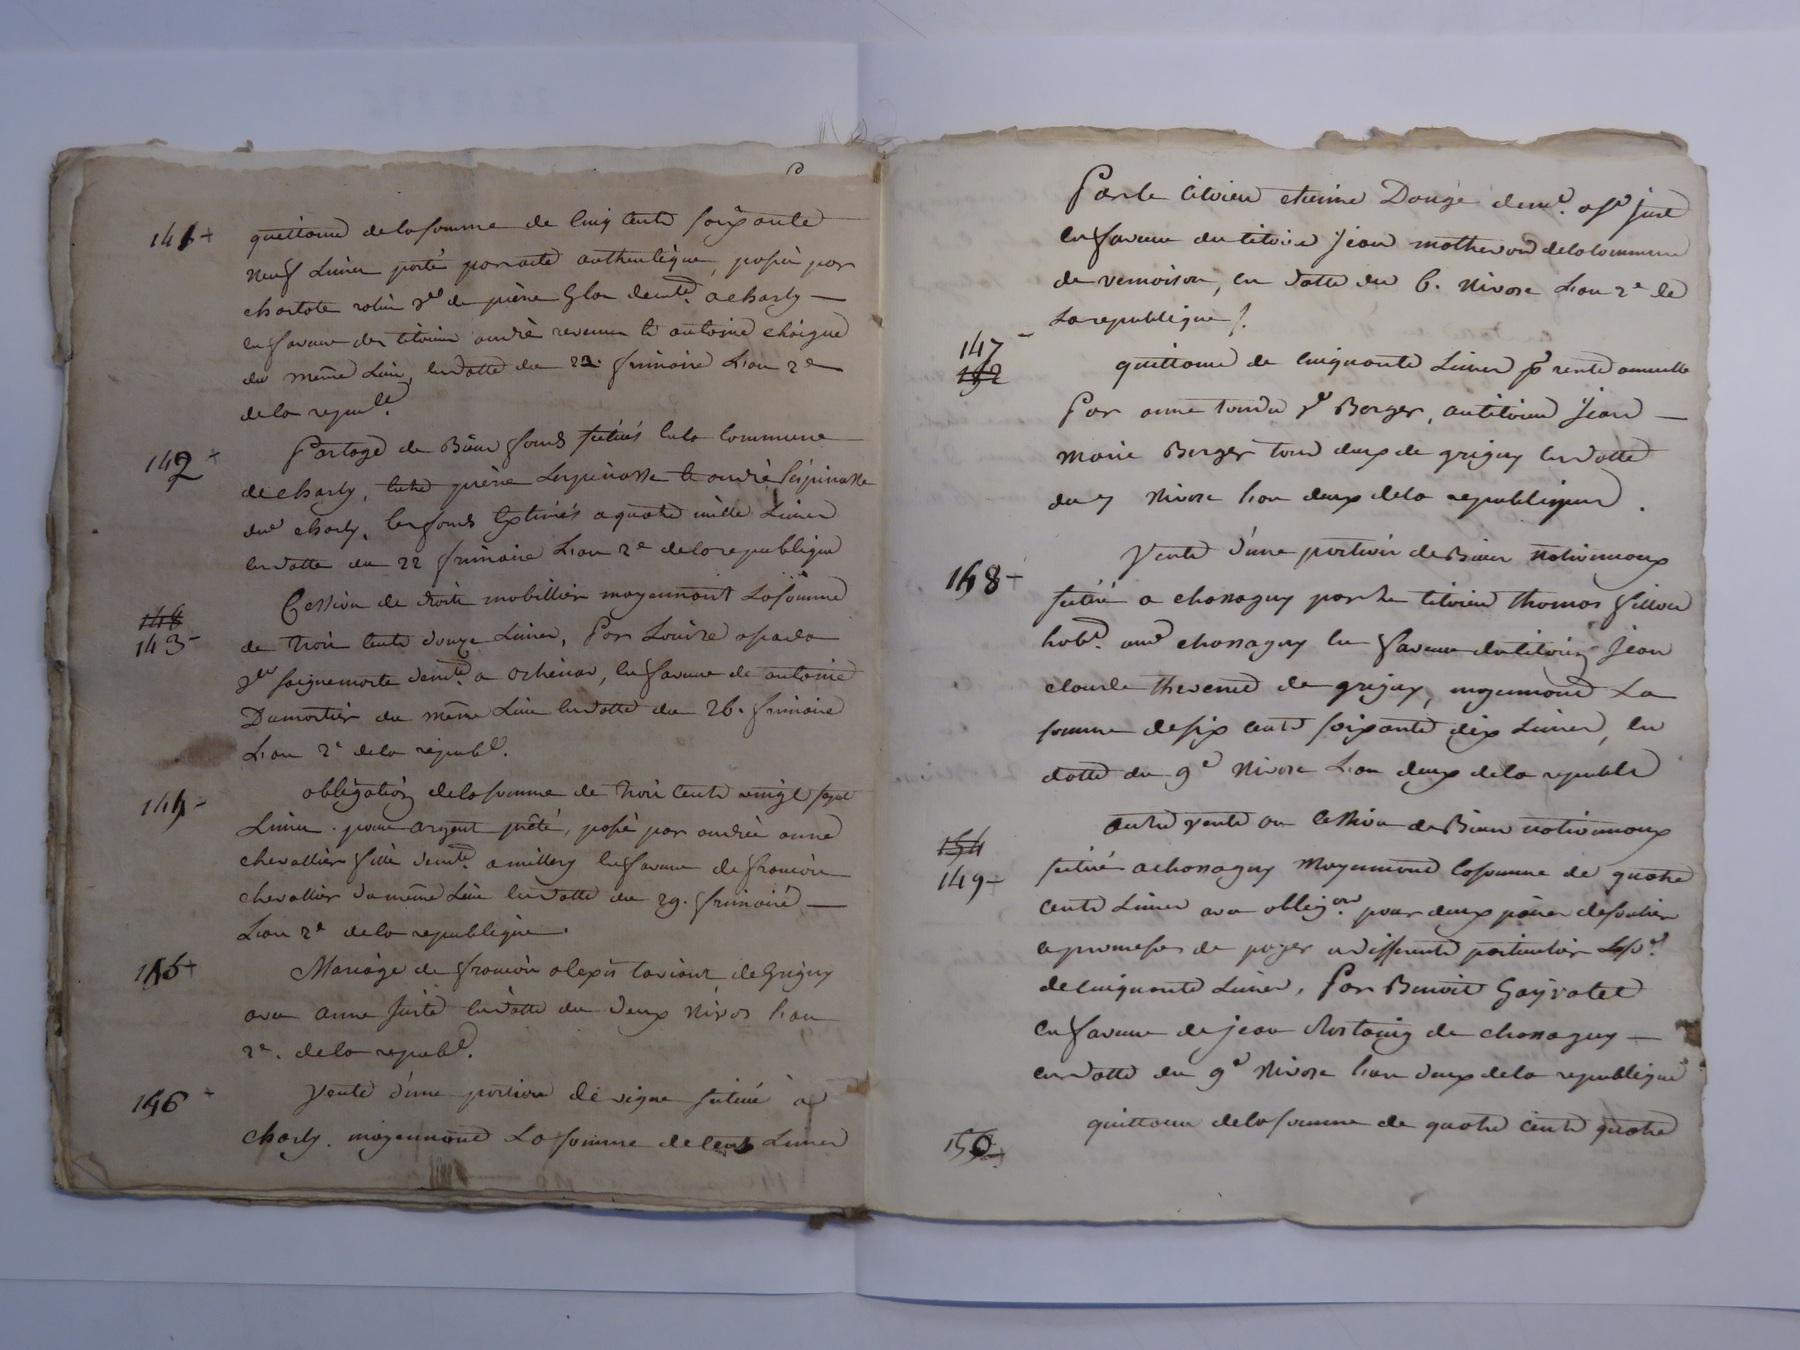 141+ quittance de la somme de cinq cents soixante
neuf Livres porté par acte authentique, passée par
charlote robin vve de pierre Glas demt. a charly —
en faveur des citoiens andré revenu et antoine
du même Lieu, en datte du 22. frimaire L'an 2e
de la republ.
142+ Partage de Biens fonds situés en la Commune
de charly, entre pierre Lespinasse et andré Lespinasse
dud charly, les fonds Extimés a quatre mille Livres
en datte du 22 frimaire L'an 2e de la republique
143- Cession de droits mobilliers moyennant La somme
de trois cents douze Livres, Par Louise
demt. a, en faveur de antoine
Dumortier du même Lieu en datte du 26. frimaire
L'an 2e de la republ.
144- obligation de la somme de trois cents vingt sept
Livres. pour argent prêté, passé par andrée anne
chevallier fille demt. a millery en faveur de francois
chevallier du même Lieu en datte du 29. frimaire —
L'an 2e de la republique.
145+ Mariage de francois alexis de Grigny
avec anne en datte du deux nivos l'an
2e. de la republ.
146+ Vente d'une portion de vigne située à
Charly. moyennant La somme de cent Livres
Par le Citoien etienne Dougé demt. a st just
en faveur du citoien jean matheron de la commune
de vernaison, en datte du 6. Nivose L'an 2e de
La republique /.
147- quittance de cinquante Livres pr rente annuelle
Par anne ve Berger, au citoien jean —
marie Berger tous deux de grigny en datte
du 7 Nivose l'an deux de la republique.
148+ Vente d'une portion de Biens nationnaux
située a chassagny par le citoien thomas fillon
habt. aud chassagny en faveur du citoien Jean
claude thevenet de grigny, moyennant La
somme de six cents soixante dix Livres, en
datte du 9e Nivose L'an deux de la republ
autre vente ou cession de Biens nationnaux
149- située a chassagny Moyennant la somme de quatre
cents Livres avec obligon pour deux paires de souliers
a promesse de payer a differents particuliers
de cinquante Livres, Par Benoit Gayvalet
en faveur de jean Rostaing de chassagny —
en datte du 9e Nivose l'an deux de la republique
150- quittance de la somme de quatre cents quatre